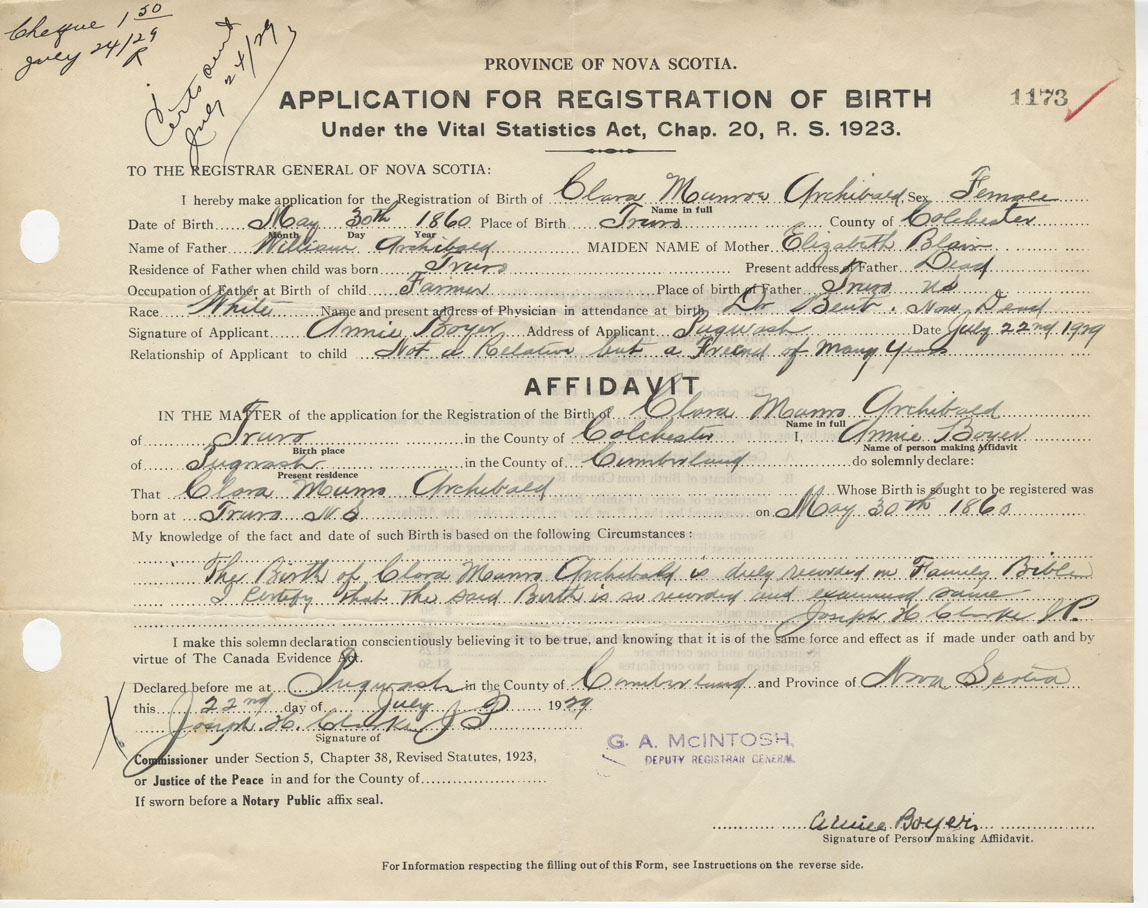 Cheque 1 50
July 24/29
R
Certs sent
July 24/29
PROVINCE OF NOVA SCOTIA.
APPLICATION FOR REGISTRATION OF BIRTH
1173
Under the Vital Statistics Act, Chap. 20, R. S. 1923.
TO THE REGISTRAR GENERAL OF NOVA SCOTIA:
I hereby make application for the Registration of Birth of Clara Munro Archibald Sex Female
Name in full
Date of Birth May 30th 1860 Place of Birth Truro County of Colchester
Month Day Year
Name of Father William Archibald MAIDEN NAME of Mother Elizabeth Blair
Residence of Father when child was born Truro Present address of Father Dead
Occupation of Father at Birth of child Farmer Place of birth of Father Truro NS
Race White Name and present address of Physician in attendance at birth Dr Bent. Now Dead
Signature of Applicant Annie Boyer Address of Applicant Pugwash Date July 22nd 1929
Relationship of Applicant to child Not a Relative but a Freend of many years
AFFIDAVIT
IN THE MATTER of the application for the Registration of the Birth of Clara Munro Archibald
Name in full
of Truro in the County of Colchester I, Annie Boyer
Birth place Name of person making Affidavit
of Pugwash in the County of Cumberland do solemnly declare:
Present residence
That Clara Munro Archibald Whose Birth is sought to be registered was
born at Truro N S on May 30th 1860
My knowledge of the fact and date of such Birth is based on the following Circumstances:
The Birth of Clara Munro Archibald is duly recorded on Family Bible
I certify that the said Birth is so recorded and examined same
Joseph H Clarke J.P.
I make this solemn declaration conscientiously believing it to be true, and knowing that it is of the same force and effect as if made under oath and by
virtue of The Canada Evidence Act.
Declared before me at Pugwash in the County of Cumberland and Province of Nova Scotia
this 22nd day of July 1929
Joseph. H. Clarke J P
Signature of
Commissioner under Section 5, Chapter 38, Revised Statutes, 1923,
or Justice of the Peace in and for the County of
If sworn before a Notary Public affix seal.
G. A. McINTOSH,
DEPUTY REGISTRAR GENERAL
Annie Boyer
Signature of Person making Affiidavit.
For Information respecting the filling out of this Form, see Instructions on the reverse side.